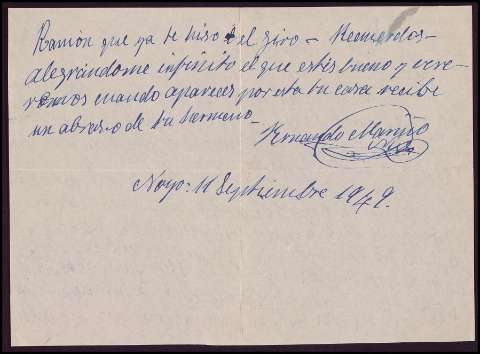 Ramón que ya te hiso el giro - Recuerdos -
alegrándome infinito el que estés bueno y vere-
remos cuando apareces por esta tu casa recibe
un abraso de tu hermano -
Fernando Mariño
Noya: 11 Septiembre 1949.